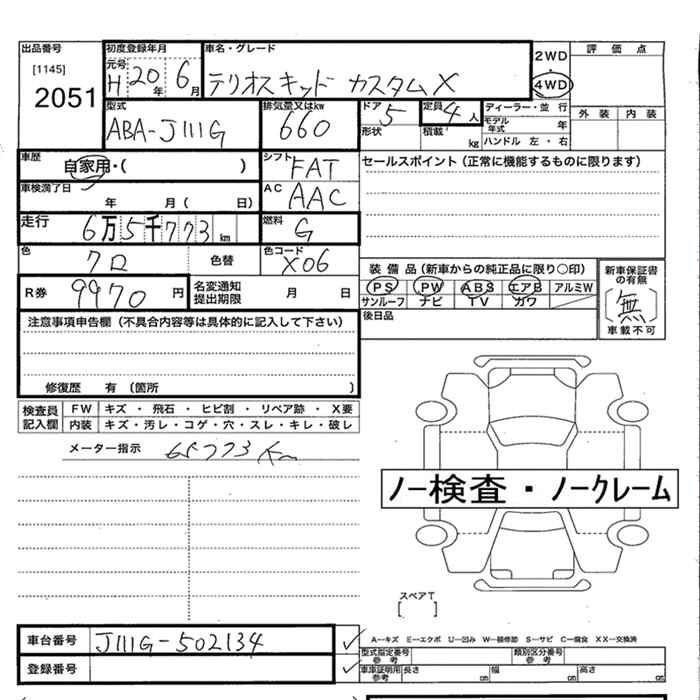 出品番号
[1145]
2051
初度登録年月
元号
H 20年 6月
車名・グレード
テリオスキッド カスタムX
2WD
・
4WD
評価点
外装 内装
型式
ABA-J111G
排気量又はkw
660
ドア
5
形状
定員
4人
積載 kg
ディーラー・並行
モデル年式 年
ハンドル 左・右
車歴
自家用・( )
シフト
FAT
セールスポイント(正常に機能するものに限ります)
車検満了日
年 月( 日)
AC
AAC
走行
6万5千773km
燃料
G
色
クロ
色替
色コード
X06
装備品(新車からの純正品に限り○印)
PS PW ABS エアB アルミW
サンルーフ ナビ TV カワ
後日品
新車保証書の有無
(無)
車載不可
R券
9970円
名変通知
提出期限
月 日
注意事項申告欄(不具合内容等は具体的に記入して下さい)
修復歴 有(箇所 )
検査員
記入欄
FW キズ・飛石・ヒビ割・リペア跡・X要
内装 キズ・汚レ・コゲ・穴・スレ・キレ・破レ
メーター指示
65773 Km
ノー検査・ノークレーム
スペアT
[ ]
車台番号
J111G-502134
登録番号
A…キズ E…エクボ U…凹み W…補修跡 S…サビ C…腐食 XX…交換済
型式指定番号
参考
類別区分番号
参考
車庫証明用
参考
長さ cm 幅 cm 高さ cm